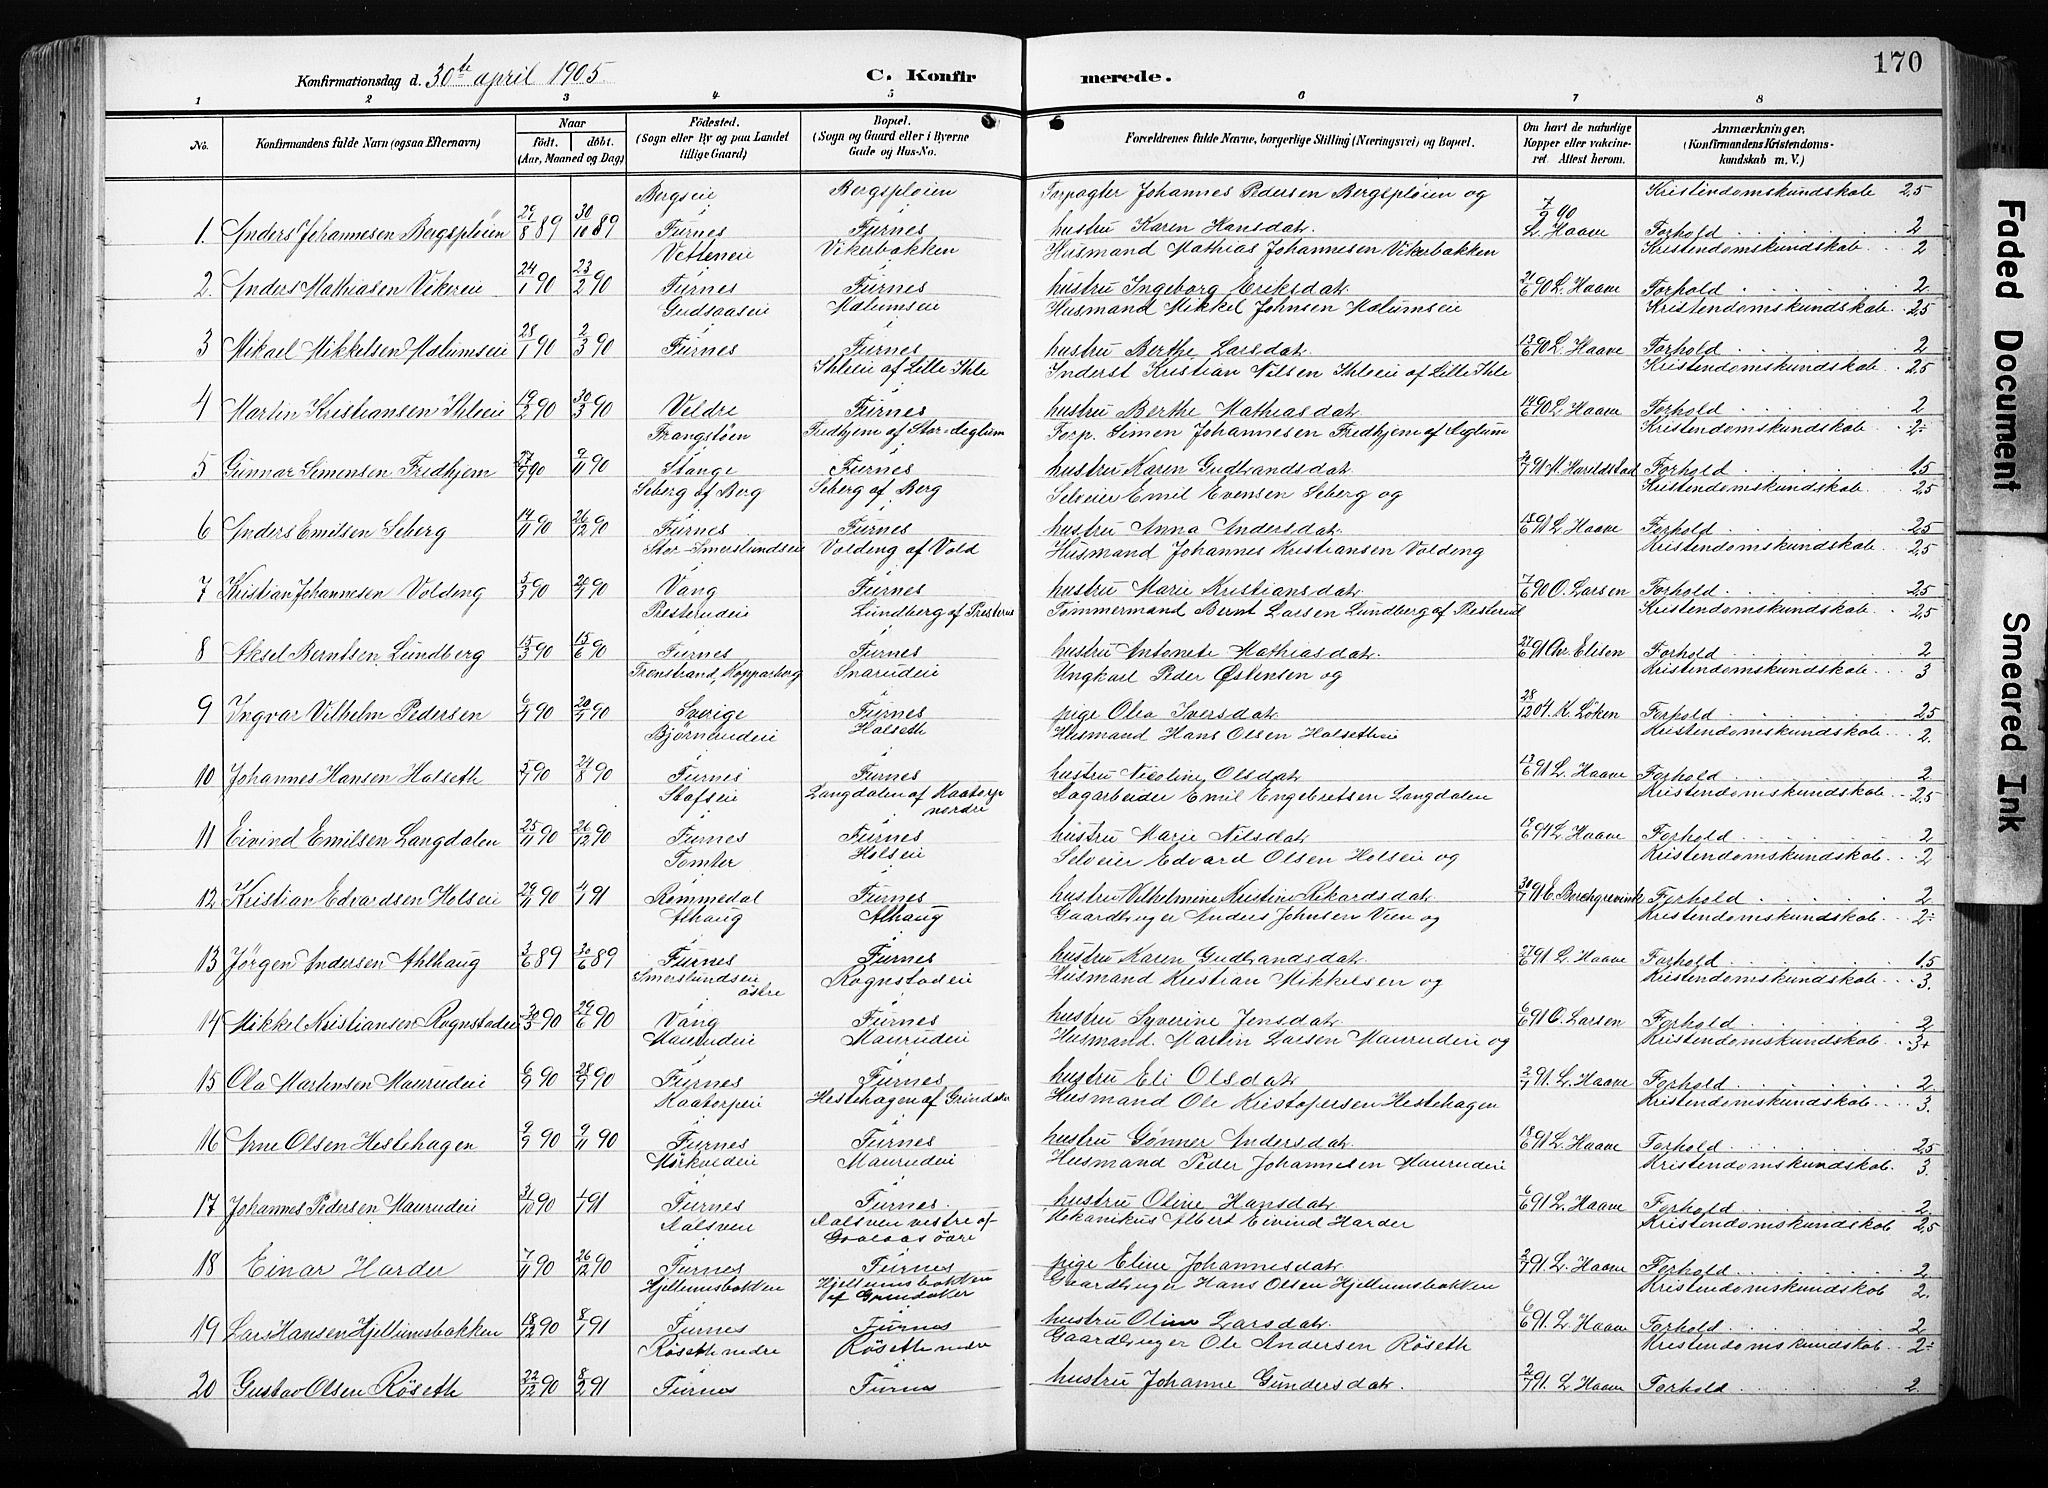 170
Konfirmationsdag d. 30te april 1905. C. Konfirmerede.
1 2 3 4 5 6 7 8
No. Konfirmandens fulde Navn (ogsaa Efternavn) Naar født. døbt. (Aar, Maaned og Dag) Födested. (Sogn eller By og paa Landet tillige Gaard) Bopæl. (Sogn og Gaard eller i Byerne Gade og Hus-No. Forældrenes fulde Navne, borgerlige Stilling (Næringsvei) og Bopæl. Om havt de naturlige Kopper eller vakcineret. Attest herom. Anmærkninger. (Konfirmandens Kristendomskundskab m. V.)
Bergseie Bergspløien Forpagter Johannes Pedersen Bergspløien og Kristendomskundskab 2,5
1. Anders Johannesen Bergspløien 29/8 89 30/10 89 i Furnes i Furnes hustru Karen Hansdat. 7/9 90 L. Haave Forhold 2
Vetteneie Vikerbakken Husmand Mathias Johannesen Vikerbakken Kristendomskundskab 2
2. Anders Mathiasen Vikereie 24/1 90 23/2 90 i Furnes i Furnes hustru Ingeborg Eriksdat. 21/6 90 L. Haave Forhold 2
Gudsaaseie Malumseie Husmand Mikkel Johnsen Malumseie Kristendomskundskab 2,5
3 Mikael Mikkelsen Malumseie 28/1 90 2/3 90 i Furnes i Furnes hustru Berthe Larsdat. 13/6 90 L. Haave Forhold 2
Ihleie af Lille Ihle Inderst Kristian Nilsen Ihleeie af Lille Ihle Kristendomskundskab 2,5
4 Martin Kristiansen Ihleeie 19/2 90 30/3 90 Veldre i Furnes hustru Berthe Mathiasdat. 14/6 90 L. Haave Forhold 2
Frangstøen Fredhjem af Stor-Aeglum Forp. Simen Johannesen Fredhjem af Aeglum Kristendomskundskab 2÷
5 Gunnar Simensen Fredhjem 27/7 90 9/11 90 i Stange i Furnes hustru Karen Gudbrandsdat. 91 M. Haraldstad Forhold 1,5
Seberg af Berg Seberg af Berg Selveier Emil Evensen Seberg og Kristendomskundskab 2,5
6 Anders Emilsen Seberg 14/11 90 26/12 90 i Furnes i Furnes hustru Anna Andersdat. 18/6 91 L. Haave Forhold 2,5
Stor-Smerslundseie Voldeng af Vold Husmand Johannes Kristiansen Voldeng Kristendomskundskab 2,5
7 Kristian Johannesen Voldeng 5/3 90 90 i Vang i Furnes hustru Marie Kristiansdat. 7/6 90 O. Larsen Forhold 2,5
Presterudeie Lundberg af Presterud Tømmermand Bernt Larsen Lundberg af Presterud Kristendomskundskab 2,5
8 Aksel Berntsen Lundberg 15/3 90 15/6 90 i Furnes i Furnes hustru Antonete Mathiasdat. 27/6 91 Chr. Elisen Forhold 2
Transtrand, Kopparberg Snarudeie Ungkarl Peder Østensen og Kristendomskundskab 3
9 Ingvar Vilhelm Pedersen 6/4 90 20/4 90 Sverige i Furnes pige Olea Iversdat. 28/12 04. K. Løken Forhold 2,5
Bjørnerudeie Halseth Husmand Hans Olsen Halsetheie Kristendomskundskab 2.
10 Johannes Hansen Halseth 5/7 90 24/8 90 i Furnes i Furnes hustru Nicoline Olsdat. 13/6 91 L. Haave Forhold 2
Stafseie Langdalen af Kaatorp nordre Dagarbeider Emil Engebretsen Langdalen Kristendomskundskab 2,5
11 Eivind Emilsen Langdalen 25/11 90 26/12 90 i Furnes i Furnes hustru Marie Nilsdat. L. Haave Forhold 2
Tomter Holseie Selveier Edvard Olsen Holseie og Kristendomskundskab 2
12 Kristian Edvardsen Holseie 29/11 90 91 i Rommedal i Furnes hustru Vilhelmine Kristine Rikardsdat. 30/7 91 E. Borchgrevink Forhold 2
Alhaug Alhaug Gaardbruger Anders Johnsen Vien og Kristendomskundskab 2÷
13 Jørgen Andersen Ahlhaug 3/6 89 30/6 89 i Furnes i Furnes hustru Karen Gudbrandsdat. 27/6 91 L. Haave Forhold 1,5
Smerslundseie østre Rognstadeie Husmand Kristian Mikkelsen og Kristendomskundskab 3.
14 Mikkel Kristiansen Rognstadeie 30/5 90 29/6 90 i Vang i Furnes hustru Syverine Jensdat. 6/6 91 O. Larsen Forhold 2
Maurudeie Maurudeie Husmand Martin Larsen Maurudeie og Kristendomskundskab 3+
15 Ola Martinsen Maurudeie 6/9 90 28/9 90 i Furnes i Furnes hustru Eli Olsdat. 2/7 91. L. Haave Forhold 2.
Kaatorpeie Hestehagen af Grindaker Husmand Ole Kristofersen Hestehagen Kristendomskundskab 3.
16 Arne Olsen Hestehagen 9/9 90 9/11 90 i Furnes i Furnes hustru Gønner Andersdat. 18/6 91 L. Haave Forhold 2,5
Mørkvedeie Maurudeie Husmand Peder Johannesen Maurudeie Kristendomskundskab 3.
17 Johannes Pedersen Maurudeie 31/10 90 91 i Furnes i Furnes. hustru Oline Hansdat. 6/6 91 L. Haave Forhold 2.
Aalsveen Aalsveen vestre af Mekanikus Albert Eivind Harder Kristendomskundskab 2,5
18 Einar Harder 7/11 90 26/12 90 i Furnes i Furnes pige Eline Johannesdat. 2/7 91. L. Haave Forhold 2
Hjellumsbakken Hjellumsbakken af Grindaker Gaardbruger Hans Olsen Hjellumsbakken Kristendomskundskab 2.
19 Lars Hansen Hjellumsbakken 18/12 90 8/1 91 i Furnes i Furnes hustru Oline Larsdat. 6/6 91. L. Haave Forhold 2
Røseth nedre Røseth nedre Gaardbruger Ole Andersen Røseth Kristendomskundskab 2÷
20 Gustav Olsen Røseth 22/12 90 8/2 91 i Furnes i Furnes hustru Johanne Gundersdat. 2/7 91. L. Haave Forhold 2.
Faded Document
Smeared Ink